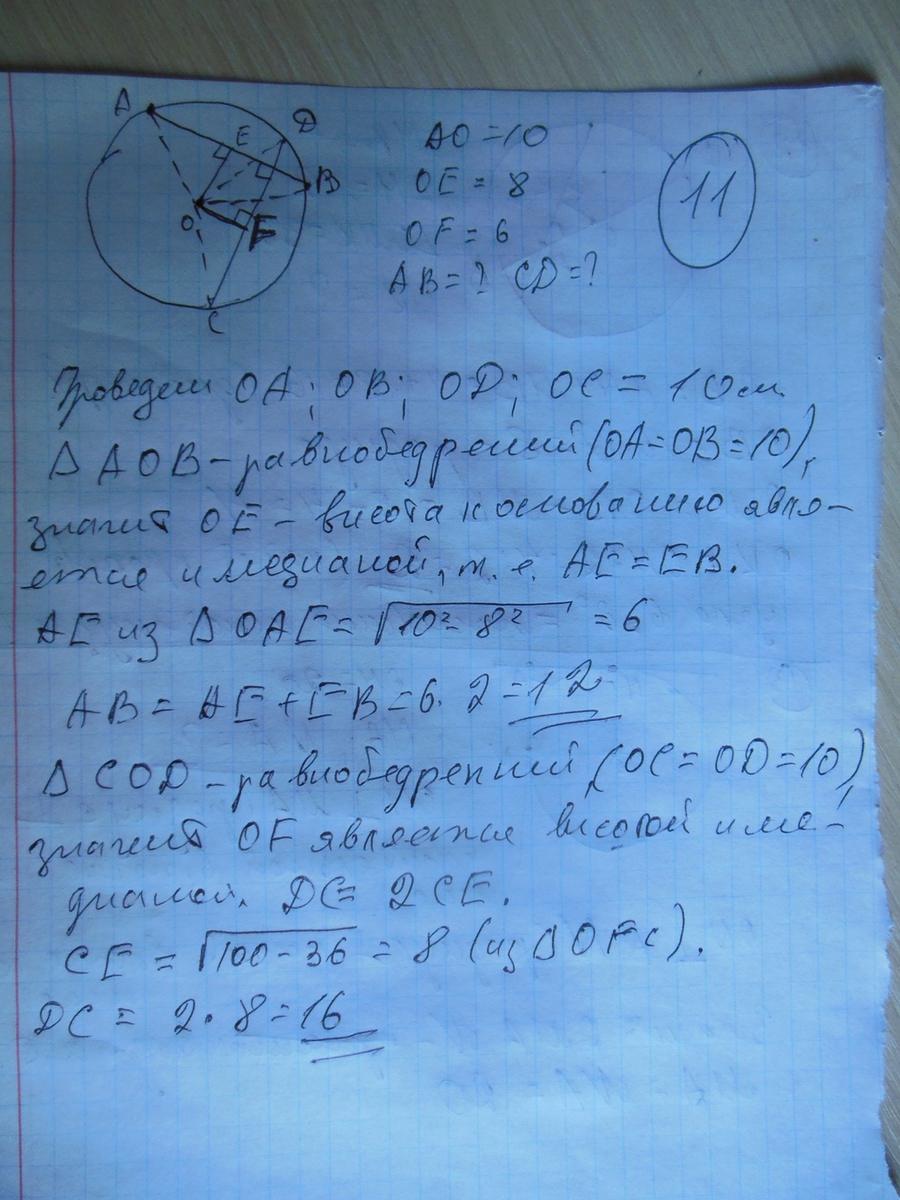 A
E
D
B
O
F
C
AO = 10
OE = 8
OF = 6
AB = ? CD = ?
11
Проведем OA; OB; OD; OC = 10см
Δ AOB – равнобедренний (OA=OB=10),
значит OE – висота к основанию явля-
ется и медианой, т. е. AE = EB.
AE из Δ OAE = √10² - 8² = 6
AB = AE + EB = 6 · 2 = 12
Δ COD – равнобедренний (OC = OD = 10),
значит OF является висотой и ме-
дианой. DC = 2CE.
CE = √100 - 36 = 8 (из Δ OFC).
DC = 2 · 8 = 16